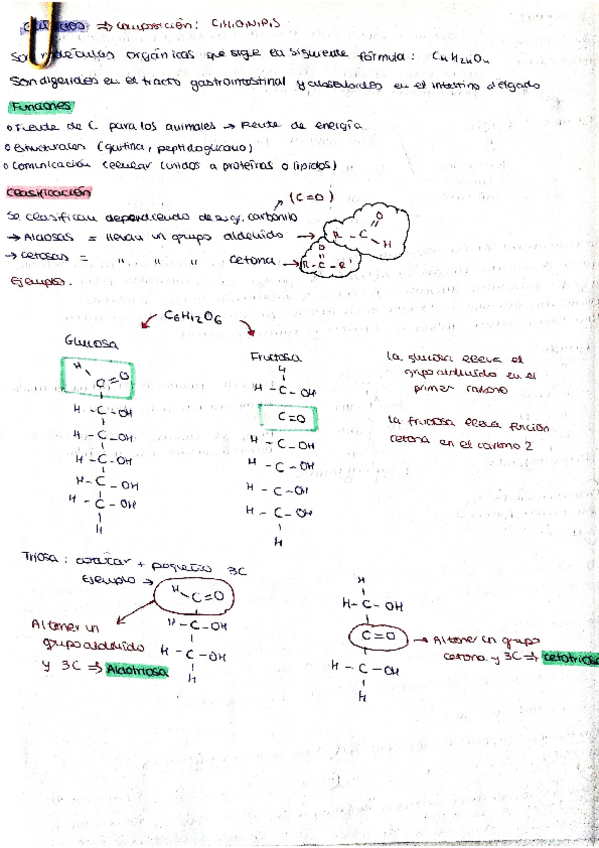 Glúcidos ⇒ composición: C,H,O,N,P,S
Son moléculas orgánicas que sige la siguiente fórmula: CnH2nOn
Son digeridos en el tracto gastrointestinal y absorbidos en el intestino delgado
Funciones
o Fuente de C para los animales → Fuente de energía
o Estructurales (quitina, peptidoglicano)
o Comunicación celular (unidos a proteínas o lípidos)
Clasificación
(C=O)
Se clasifican dependiendo de su gr. carbonilo
→ Aldosas = llevan un grupo aldehído → R-C
O
H
→ Cetosas = " " " cetona → R-C-R'
O
Ejemplo.
C6H12O6
Glucosa
Fructosa
H
C=O
H-C-OH
H-C-OH
H-C-OH
H-C-OH
H-C-OH
H
H
H-C-OH
C=O
H-C-OH
H-C-OH
H-C-OH
H-C-OH
H
la glucosa lleva el
grupo aldehído en el
primer carbono
la fructosa lleva función
cetona en el carbono 2
Triosa: azúcar + pequeño 3C
Ejemplo →
H
C=O
H-C-OH
H-C-OH
H
Al tener un
grupo aldehído
y 3C ⇒ Aldotriosa
H
H-C-OH
C=O
H-C-OH
H
→ Al tener un grupo
cetona y 3C ⇒ cetotriosa